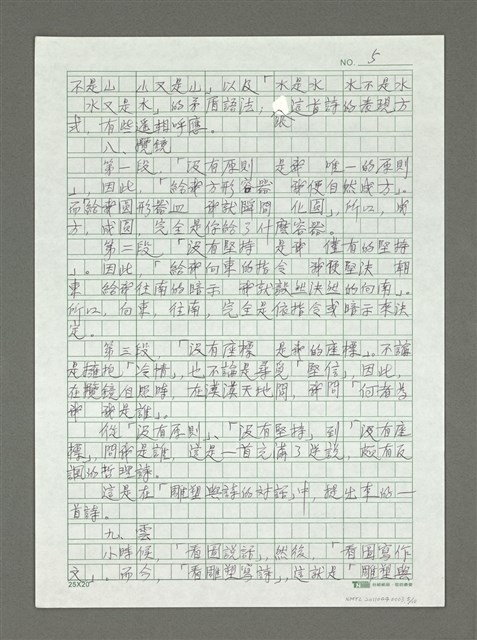 NO. 5
不是山 山又是山」以及「水是水 水不是水
水又是水」的矛盾語法,跟這首詩的表現方
式,有些遙相呼應。
八、攬鏡
第一段,「沒有原則 是我 唯一的原則
」,因此,「給我方形容器 我便自然成方」。
而給我圓形器皿 我就瞬間 化圓」,所以,成
方,成圓,完全是你給了什麼容器。
第二段「沒有堅持 是我 僅有的堅持
」。因此,「給我向東的指令 我便堅決 朝
東 給我往南的暗示 我就毅然決然的向南」。
所以,向東,往南,完全是依指令或暗示來決
定。
第三段,「沒有座標 是我的座標」。不論
是擁抱「冷情」,也不論是尋覓「堅信」,因此,
在攬鏡自照時,在漠漠天地間,我問「何者為
我 我是誰」。
從「沒有原則」、「沒有堅持」到「沒有座
標」,問我是誰,這是一首充滿了逆說,頗有反
諷的哲理詩。
這是在「雕塑與詩的對話」中,提出來的一
首詩。
九、雲
小時候,「看圖說話」,然後,「看圖寫作
文」。而今,「看雕塑寫詩」,這就是「雕塑與
25X20